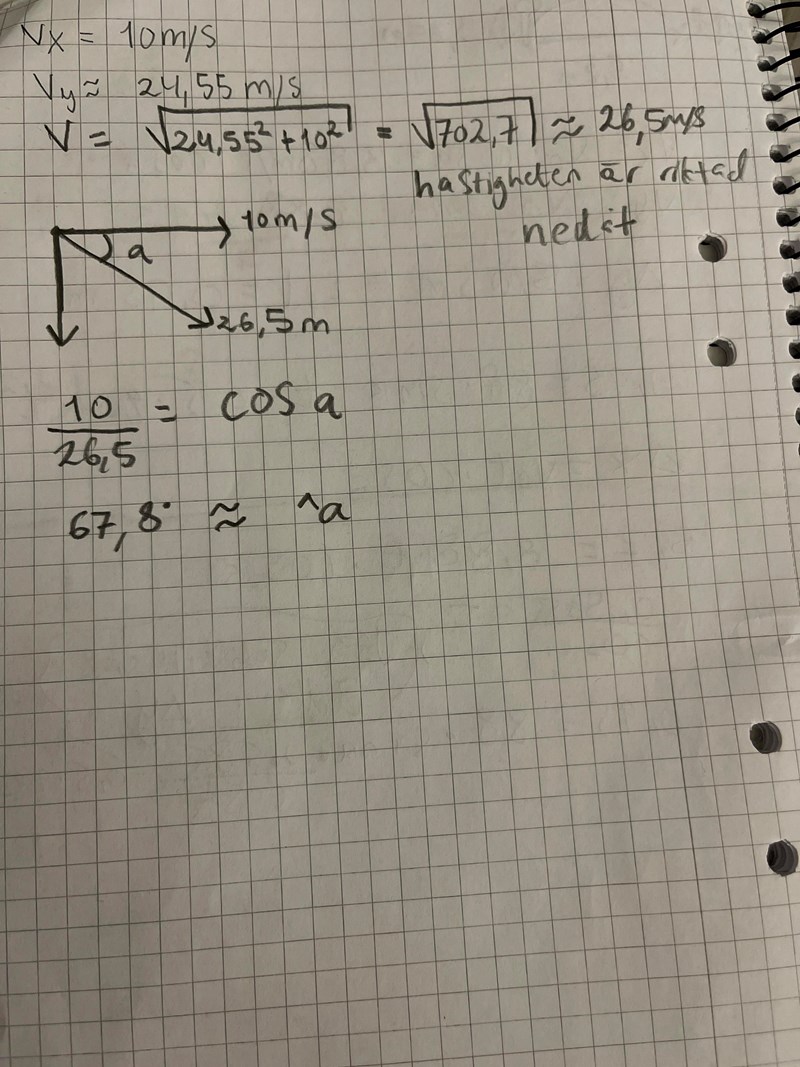 Vx = 10 m/s
Vy ≈ 24,55 m/s
V = √24,55² + 10² = √702,7 ≈ 26,5 m/s
hastigheten är riktad
nedåt
10 m/s
a
26,5 m
10/26,5 = cos a
67,8° ≈ ^a